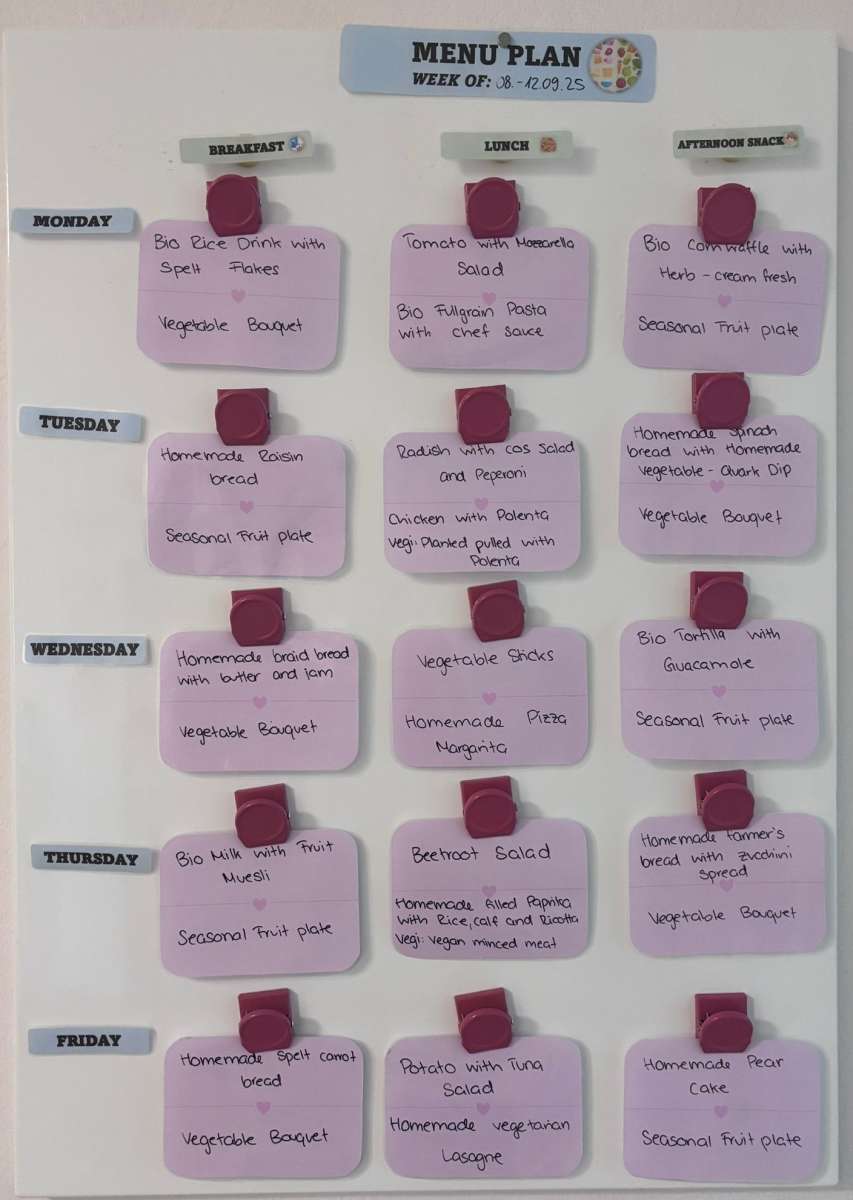 MENU PLAN
WEEK OF: 08.-12.09.25
BREAKFAST
LUNCH
AFTERNOON SNACK
MONDAY
Bio Rice Drink with
Spelt Flakes
Vegetable Bouquet
Tomato with Mozzarella
Salad
Bio Fullgrain Pasta
with chef sauce
Bio Cornwaffle with
Herb - cream fresh
Seasonal Fruit plate
TUESDAY
Homemade Raisin
bread
Seasonal Fruit plate
Radish with cos Salad
and Peperoni
Chicken with Polenta
Vegi: Planted pulled with
Polenta
Homemade Spinach
bread with Homemade
vegetable - Quark Dip
Vegetable Bouquet
WEDNESDAY
Homemade braid bread
with butter and jam
Vegetable Bouquet
Vegetable Sticks
Homemade Pizza
Margarita
Bio Tortilla with
Guacamole
Seasonal Fruit plate
THURSDAY
Bio Milk with Fruit
Muesli
Seasonal Fruit plate
Beetroot Salad
Homemade filled Paprika
with Rice, calf and Ricotta
Vegi: vegan minced meat
Homemade farmer's
bread with zucchini
Spread
Vegetable Bouquet
FRIDAY
Homemade Spelt carrot
bread
Vegetable Bouquet
Potato with Tuna
Salad
Homemade vegetarian
Lasagne
Homemade Pear
Cake
Seasonal Fruit plate